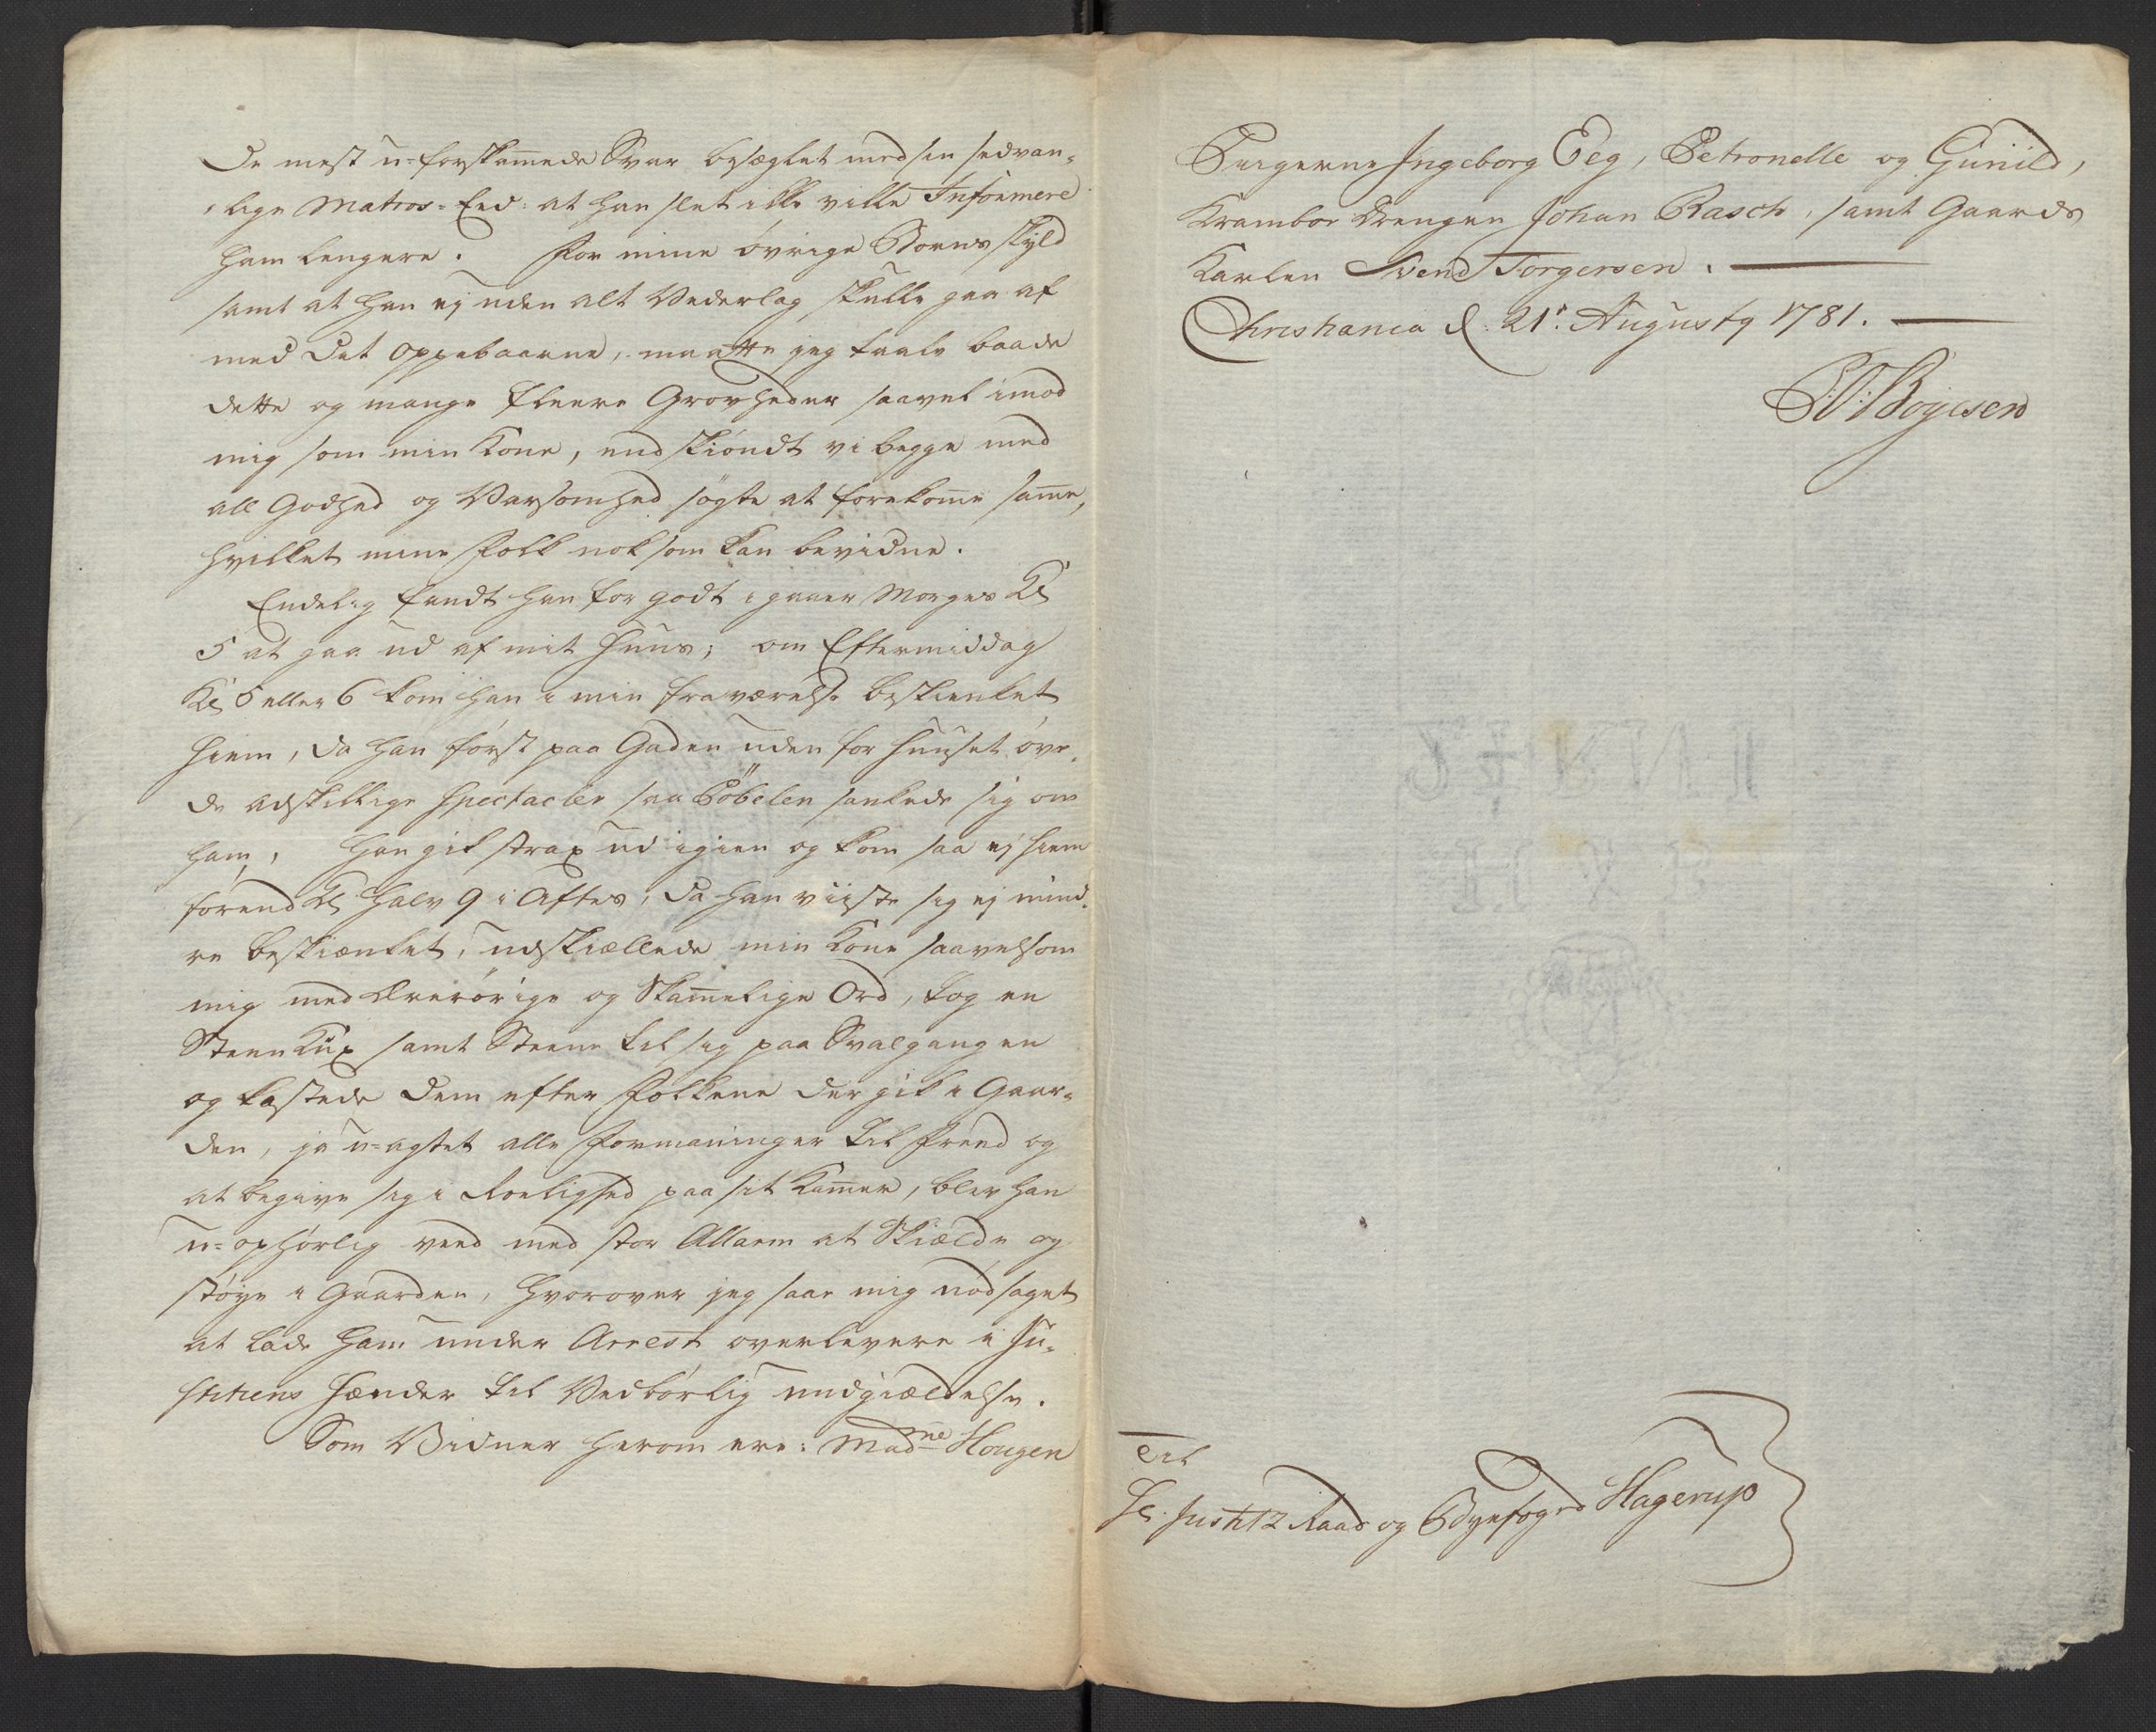 De mest u-forskam̄ede Svar besæglet med sin sedvan-
lige Matros-Eed: at han slet ikke ville Informere
ham lengere. For mine övrige Börns skyld
samt at han ej uden alt Vederlag skulle gaa af
med det oppebaarne, maatte jeg taale baade
dette og mange fleere Grovheder saavel imod
mig som min Kone, endskiöndt vi begge med
all Godhed og Varsomhed sögte at forekom̄e sam̄e,
hvilket mine Folk noksom kan bevidne.
Endelig fandt han for godt i gaaer Morges Kl
5 at gaa ud af mit Huus; om Eftermiddag
Kl 5 eller 6 kom han i min fraværelse beskienket
hiem, da han först paa Gaden uden for Huuset öve-
de adskillige Spectacler saa Pöbelen sankede sig om
ham, han gik strax ud igien og kom saa ej hiem
förend Kl halv 9 i Aftes, da han viiste sig ej mind-
re beskiænket, udskiællede min Kone saavelsom
mig med ærerörige og skam̄elige Ord, tog en
Steen Krux samt Steene til sig paa Svalgangen
og kastede dem efter Folkene der gik i Gaar-
den, ja u-agtet alle Formaninger til Freed og
at begive sig i Roelighed paa sit Kam̄er, blev han
u-ophörlig veed med stor Allarm at skiælde og
stöye i Gaarden, hvorover jeg saae mig nödsaget
at lade ham under Arrest overlevere i Ju-
stitiens Hænder til Vedbörlig undgiældelse.
Som Vidner herom ere: Mad<sup>me</sup> Hougen
Pigerne Ingeborg Eeg, Petronelle og Gunild,
Krambor Drengen Johan Rasch, samt Gaards
Karlen Svend Torgersen.
Christiania d: 21<sup>e</sup>: Augusty 1781.
Boyesen
Til
Hr. Justitz Raad og Byefoged Hagerup